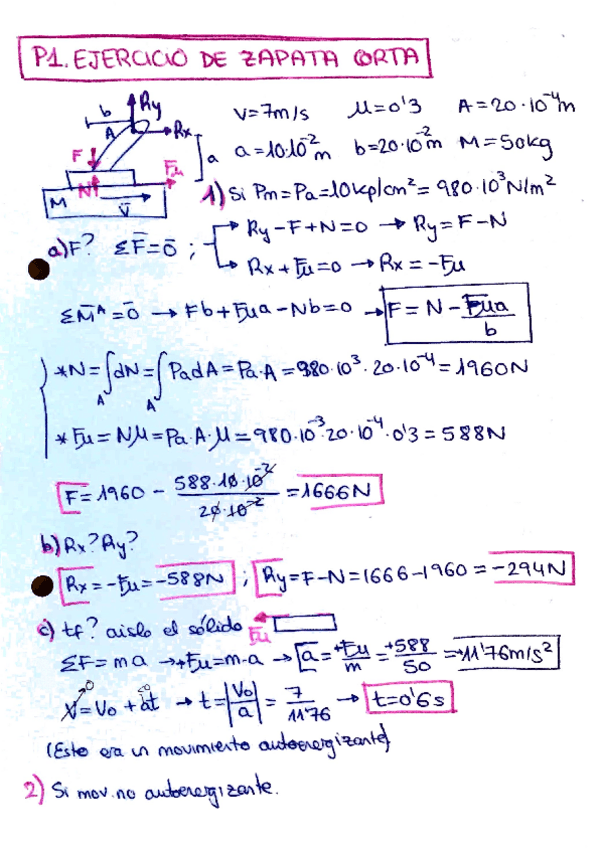 P1. EJERCICIO DE ZAPATA CORTA
b Ry V=7m/s μ=0'3 A=20·10⁻⁴m
A Rx a=10·10⁻²m b=20·10⁻²m M=50kg
F a Fu
N 1) Si Pm=Pa=10kp/cm²=980·10³N/m²
M V̄
Ry-F+N=0 → Ry=F-N
a) F? ΣF̄=0̄ ;
Rx+Fu=0 → Rx=-Fu
ΣM̄ᴬ=0̄ → Fb+Fua-Nb=0 → F=N-Fua/b
*N=∫dN=∫PadA=Pa·A=980·10³·20·10⁻⁴=1960N
A A
*Fu=Nμ=Pa·A·μ=980·10⁻³·20·10⁻⁴·0'3=588N
F=1960-588·10·10⁻²/20·10⁻²=1666N
b) Rx? Ry?
Rx=-Fu=-588N ; Ry=F-N=1666-1960=-294N
c) tf? aislo el sólido Fu
ΣF=ma → +Fu=m·a → a=+Fu/m=+588/50=11'76m/s²
V=Vo+at → t=|Vo/a|=7/11'76 → t=0'6s
(Este era un movimiento autoenergizante)
2) Si mov. no autoenergizante.